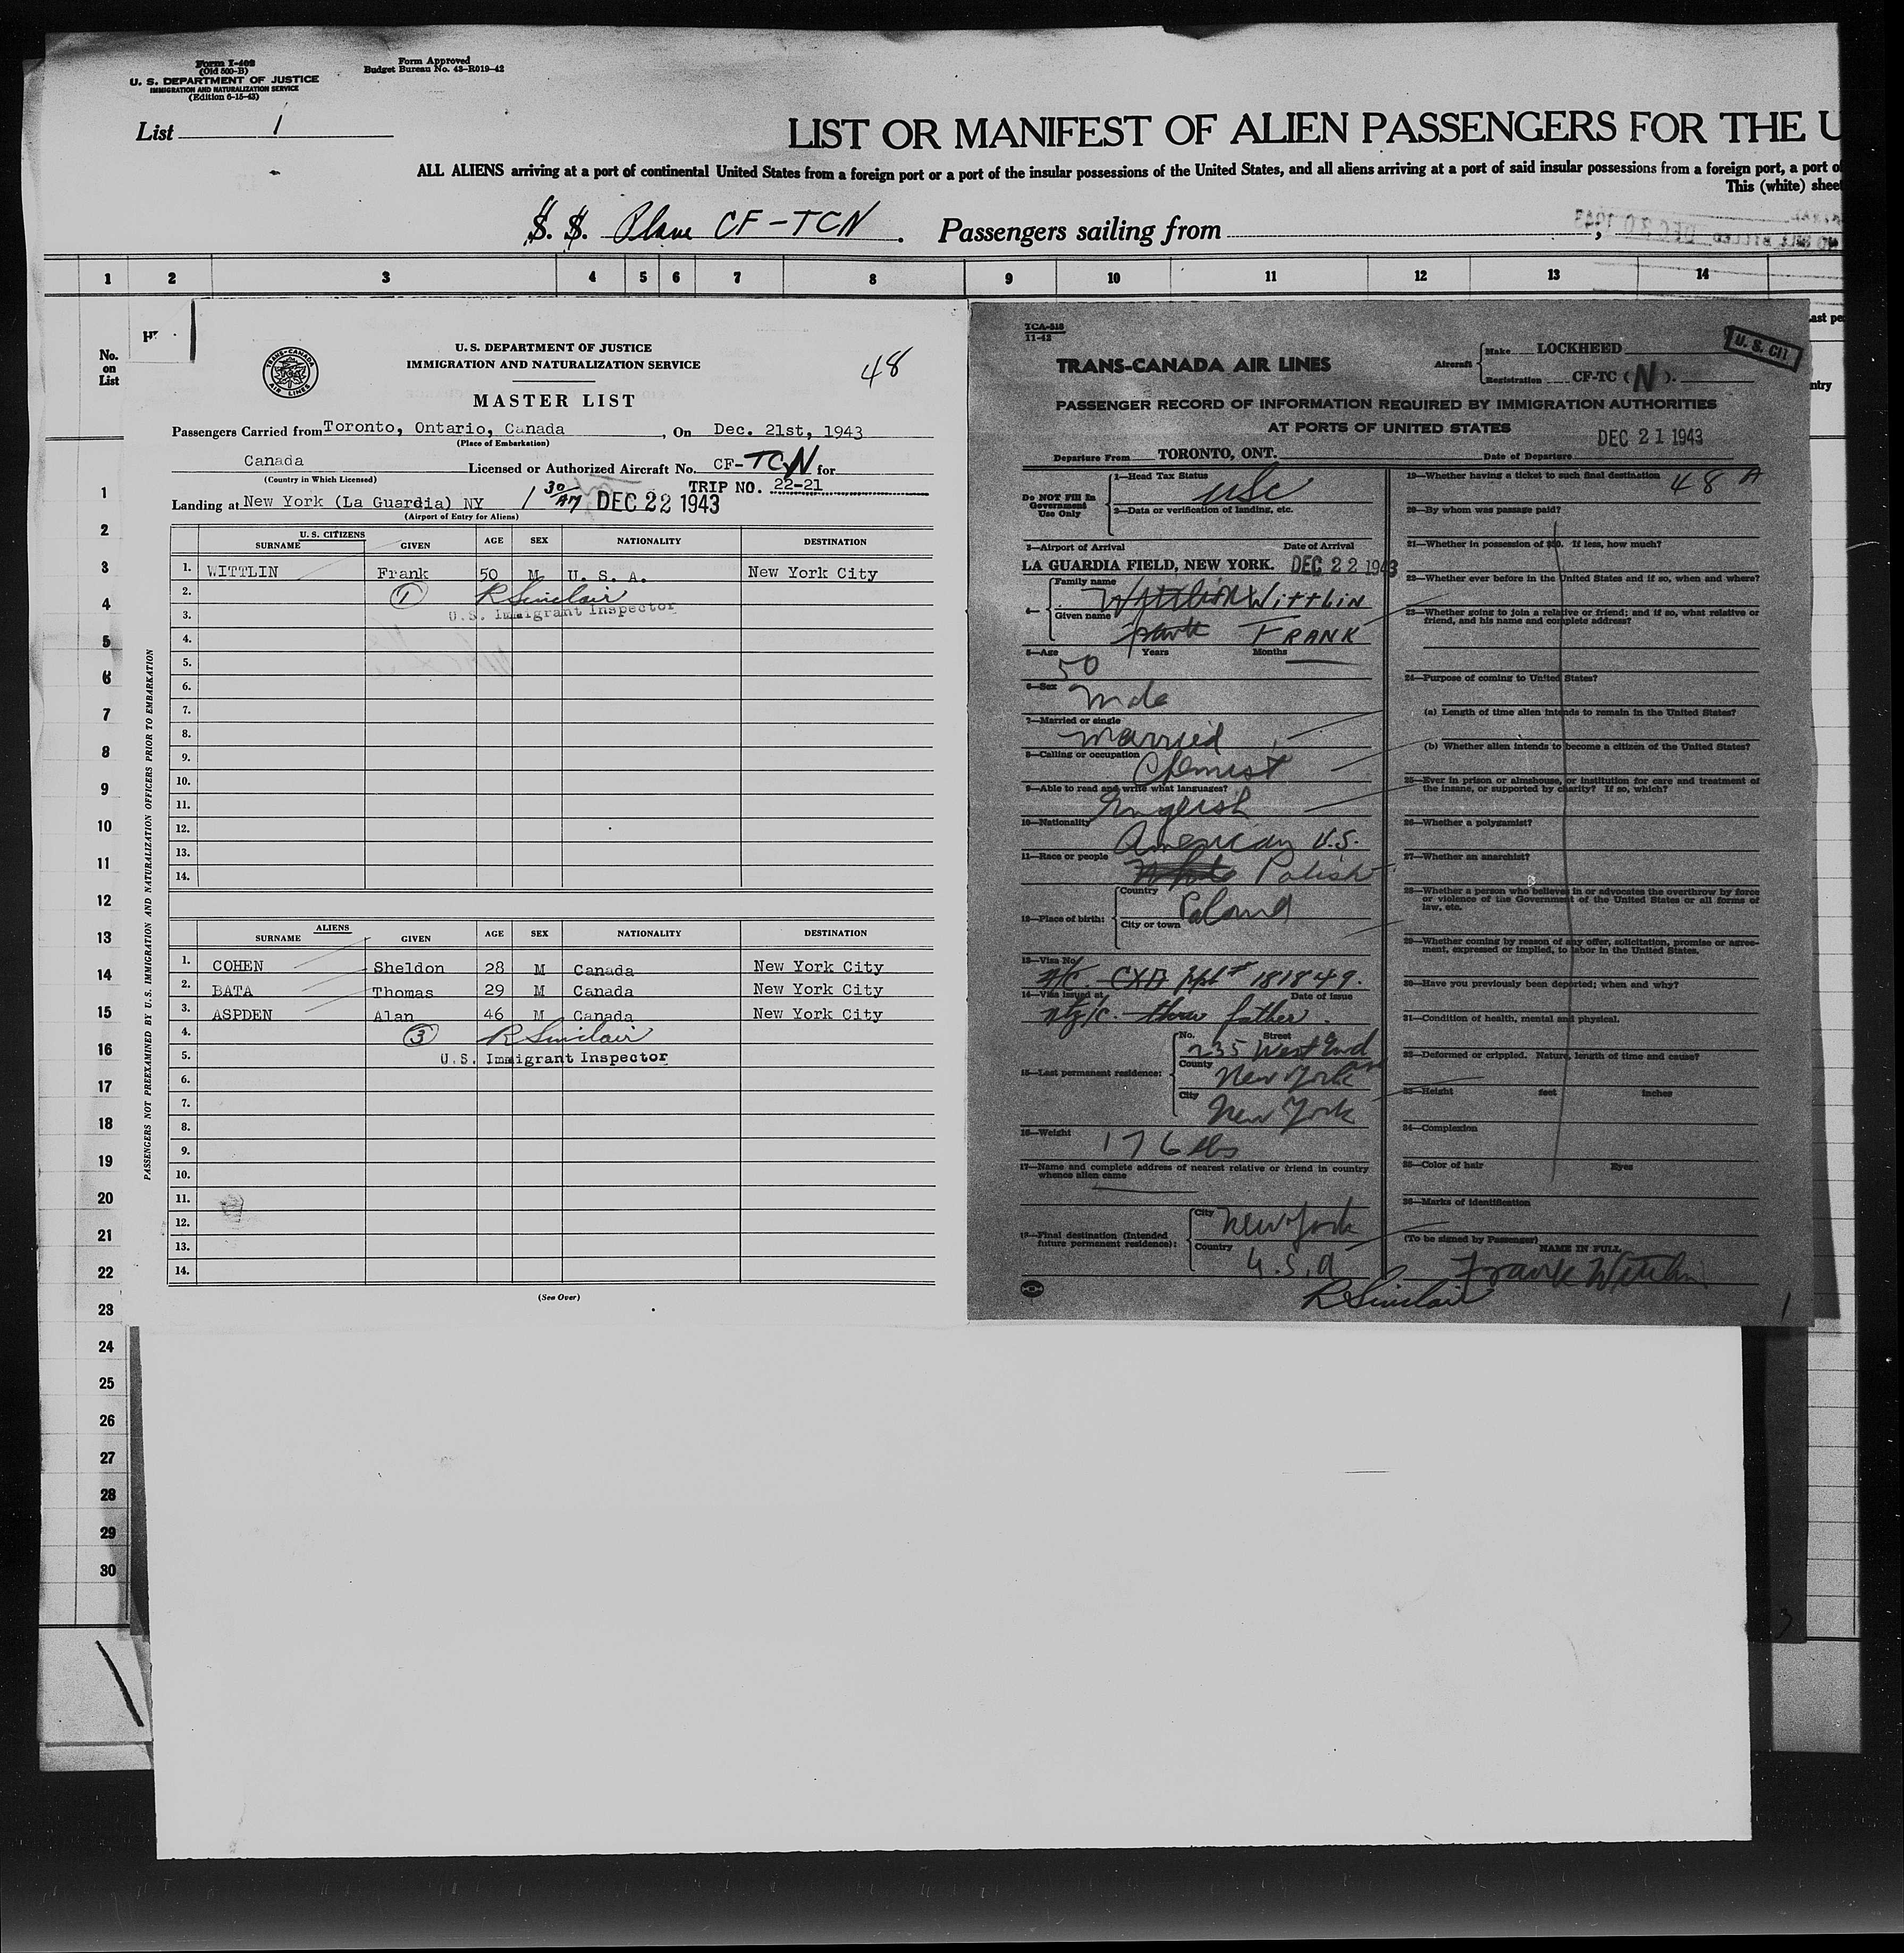 Form I-402
(Old 500-B)
U. S. DEPARTMENT OF JUSTICE
IMMIGRATION AND NATURALIZATION SERVICE
(Edition 6-15-43)
Form Approved
Budget Bureau No. 43-R019-42
List 1
LIST OR MANIFEST OF ALIEN PASSENGERS FOR THE U
ALL ALIENS arriving at a port of continental United States from a foreign port or a port of the insular possessions of the United States, and all aliens arriving at a port of said insular possessions from a foreign port, a port of
This (white) sheet
S. S. Plane CF-TCN. Passengers sailing from
1 2 3 4 5 6 7 8 9 10 11 12 13 14
No.
on
List
1
2
3
4
5
6
7
8
9
10
11
12
13
14
15
16
17
18
19
20
21
22
23
24
25
26
27
28
29
30
TRANS-CANADA AIR LINES
U. S. DEPARTMENT OF JUSTICE
IMMIGRATION AND NATURALIZATION SERVICE
48
MASTER LIST
Passengers Carried from Toronto, Ontario, Canada, On Dec. 21st, 1943
(Place of Embarkation)
Canada Licensed or Authorized Aircraft No. CF-TCN for
(Country in Which Licensed)
TRIP NO. 22-21
Landing at New York (La Guardia) NY 1 30/AM DEC 22 1943
(Airport of Entry for Aliens)
U. S. CITIZENS
SURNAME GIVEN AGE SEX NATIONALITY DESTINATION
1. WITTLIN Frank 50 M U. S. A. New York City
2. 1 R Sinclair
3. U.S. Immigrant Inspector
4.
5.
6.
7.
8.
9.
10.
11.
12.
13.
14.
ALIENS
SURNAME GIVEN AGE SEX NATIONALITY DESTINATION
1. COHEN Sheldon 28 M Canada New York City
2. BATA Thomas 29 M Canada New York City
3. ASPDEN Alan 46 M Canada New York City
4. 3 R Sinclair
5. U.S. Immigrant Inspector
6.
7.
8.
9.
10.
11.
12.
13.
14.
(See Over)
PASSENGERS NOT PREEXAMINED BY U.S. IMMIGRATION AND NATURALIZATION OFFICERS PRIOR TO EMBARKATION
TCA-518
11-42
TRANS-CANADA AIR LINES
Aircraft Make LOCKHEED
Registration CF-TC (N).
U. S. CIT.
PASSENGER RECORD OF INFORMATION REQUIRED BY IMMIGRATION AUTHORITIES
AT PORTS OF UNITED STATES
DEC 21 1943
Departure From TORONTO, ONT. Date of Departure
Do NOT Fill In
Government
Use Only
1—Head Tax Status
USC
2—Data or verification of landing, etc.
3—Airport of Arrival Date of Arrival
LA GUARDIA FIELD, NEW YORK. DEC 22 1943
4— Family name WittLiN
Given name FRANK
5—Age 50 Years Months
6—Sex Male
7—Married or single
married
8—Calling or occupation
Chemist
9—Able to read and write what languages?
English
10—Nationality American U.S.
11—Race or people Polish
12—Place of birth: Country Poland
City or town
13—Visa No.
181849.
14—Visa issued at Date of issue
thru father.
15—Last permanent residence: No. Street
235 West End
County
New York
City
New York
16—Weight 176 lbs
17—Name and complete address of nearest relative or friend in country
whence alien came
18—Final destination (Intended
future permanent residence):
City New York
Country U.S.A
19—Whether having a ticket to such final destination 48 A
20—By whom was passage paid?
21—Whether in possession of $50. If less, how much?
22—Whether ever before in the United States and if so, when and where?
23—Whether going to join a relative or friend; and if so, what relative or
friend, and his name and complete address?
24—Purpose of coming to United States?
(a) Length of time alien intends to remain in the United States?
(b) Whether alien intends to become a citizen of the United States?
25—Ever in prison or almshouse, or institution for care and treatment of
the insane, or supported by charity? If so, which?
26—Whether a polygamist?
27—Whether an anarchist?
28—Whether a person who believes in or advocates the overthrow by force
or violence of the Government of the United States or all forms of
law, etc.
29—Whether coming by reason of any offer, solicitation, promise or agree-
ment, expressed or implied, to labor in the United States.
30—Have you previously been deported; when and why?
31—Condition of health, mental and physical.
32—Deformed or crippled. Nature, length of time and cause?
33—Height feet inches
34—Complexion
35—Color of hair Eyes
36—Marks of identification
(To be signed by Passenger)
NAME IN FULL
Frank Wittlin
R Sinclair
1